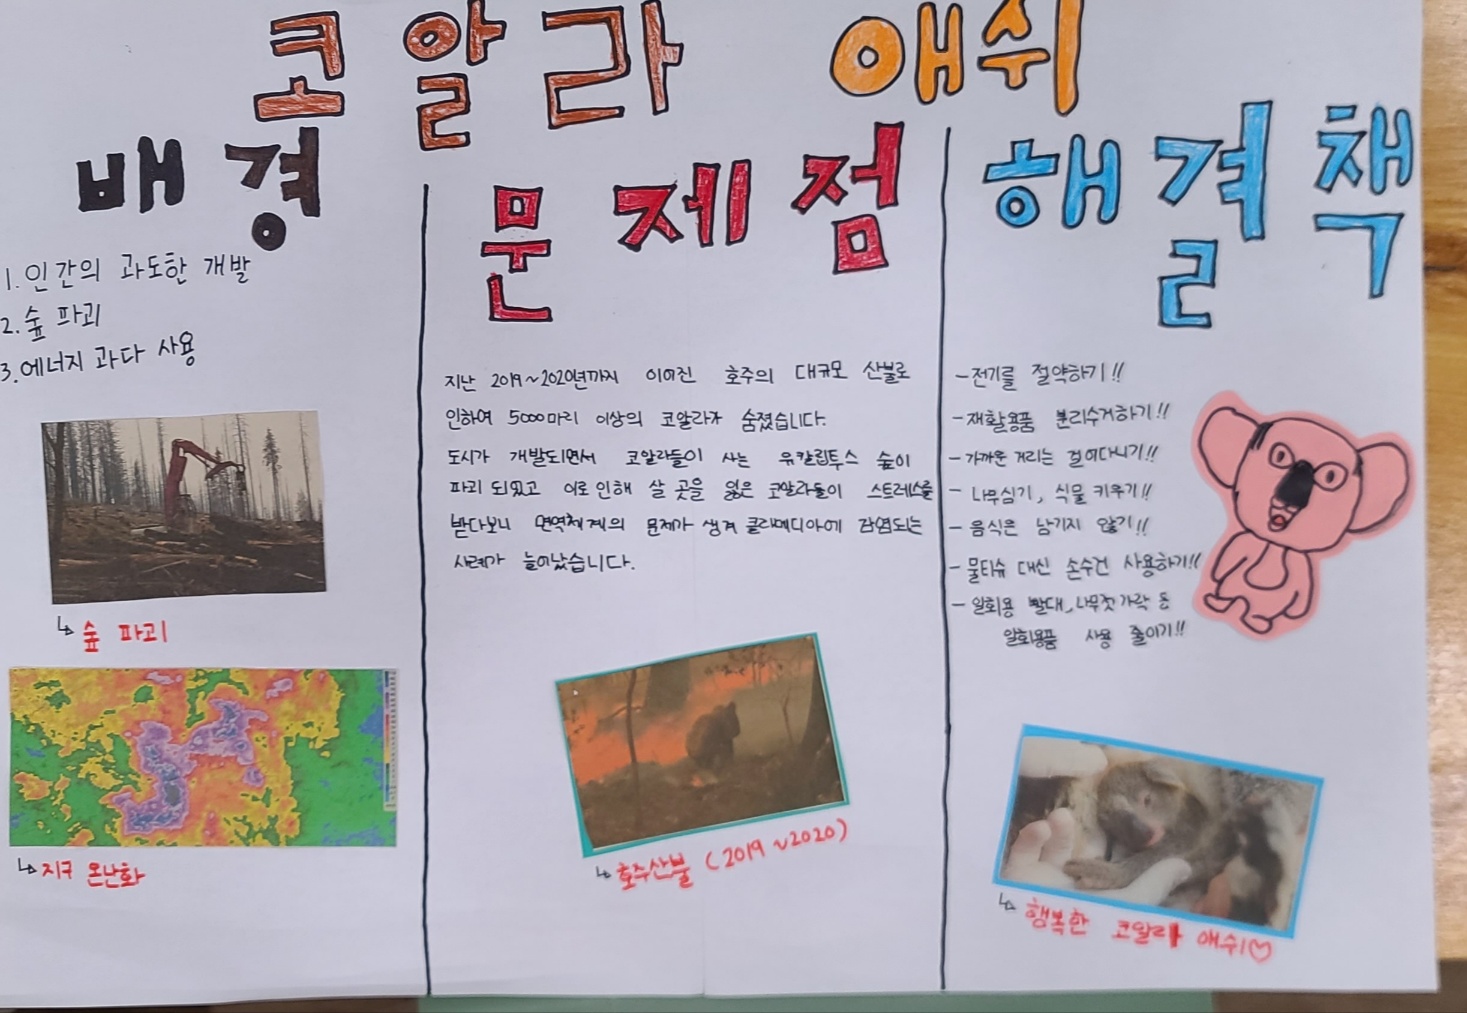 코알라 애쉬
배경
1. 인간의 과도한 개발
2. 숲 파괴
3. 에너지 과다 사용
↳ 숲 파괴
↳ 지구 온난화
문제점
지난 2019~2020년까지 이어진 호주의 대규모 산불로
인하여 5000마리 이상의 코알라가 숨졌습니다.
도시가 개발되면서 코알라들이 사는 유칼립투스 숲이
파괴 되었고 이로 인해 살 곳을 잃은 코알라들이 스트레스를
받다보니 면역체계의 문제가 생겨 클라미디아에 감염되는
사례가 늘어났습니다.
↳ 호주산불 (2019~2020)
해결책
- 전기를 절약하기!!
- 재활용품 분리수거하기!!
- 가까운 거리는 걸어다니기!!
- 나무심기, 식물 키우기!!
- 음식은 남기지 않기!!
- 물티슈 대신 손수건 사용하기!!
- 일회용 빨대, 나무젓가락 등
일회용품 사용 줄이기!!
↳ 행복한 코알라 애쉬♡